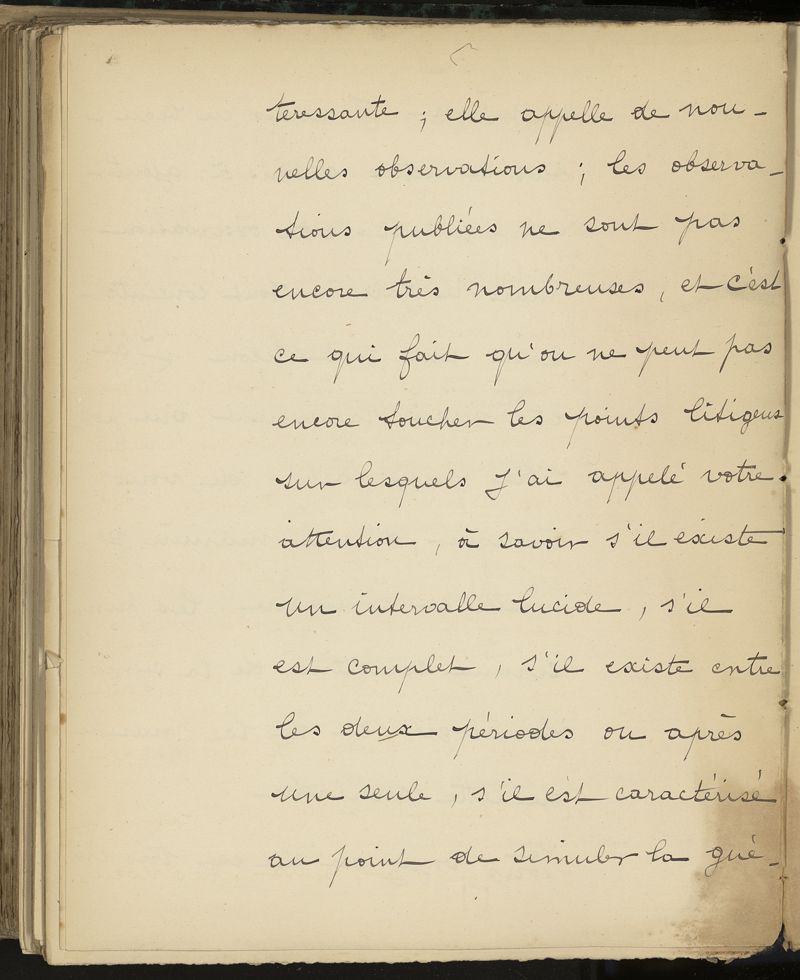 teressante ; elle appelle de nou-
velles observations ; les observa-
tions publiées ne sont pas
encore très nombreuses, et c'est
ce qui fait qu'on ne peut pas
encore toucher les points litigeux
sur lesquels j'ai appelé votre
attention, à savoir s'il existe
un intervalle lucide, s'il
est complet, s'il existe entre
les deux périodes ou après
une seule, s'il est caractérisé
au point de simuler la gué-